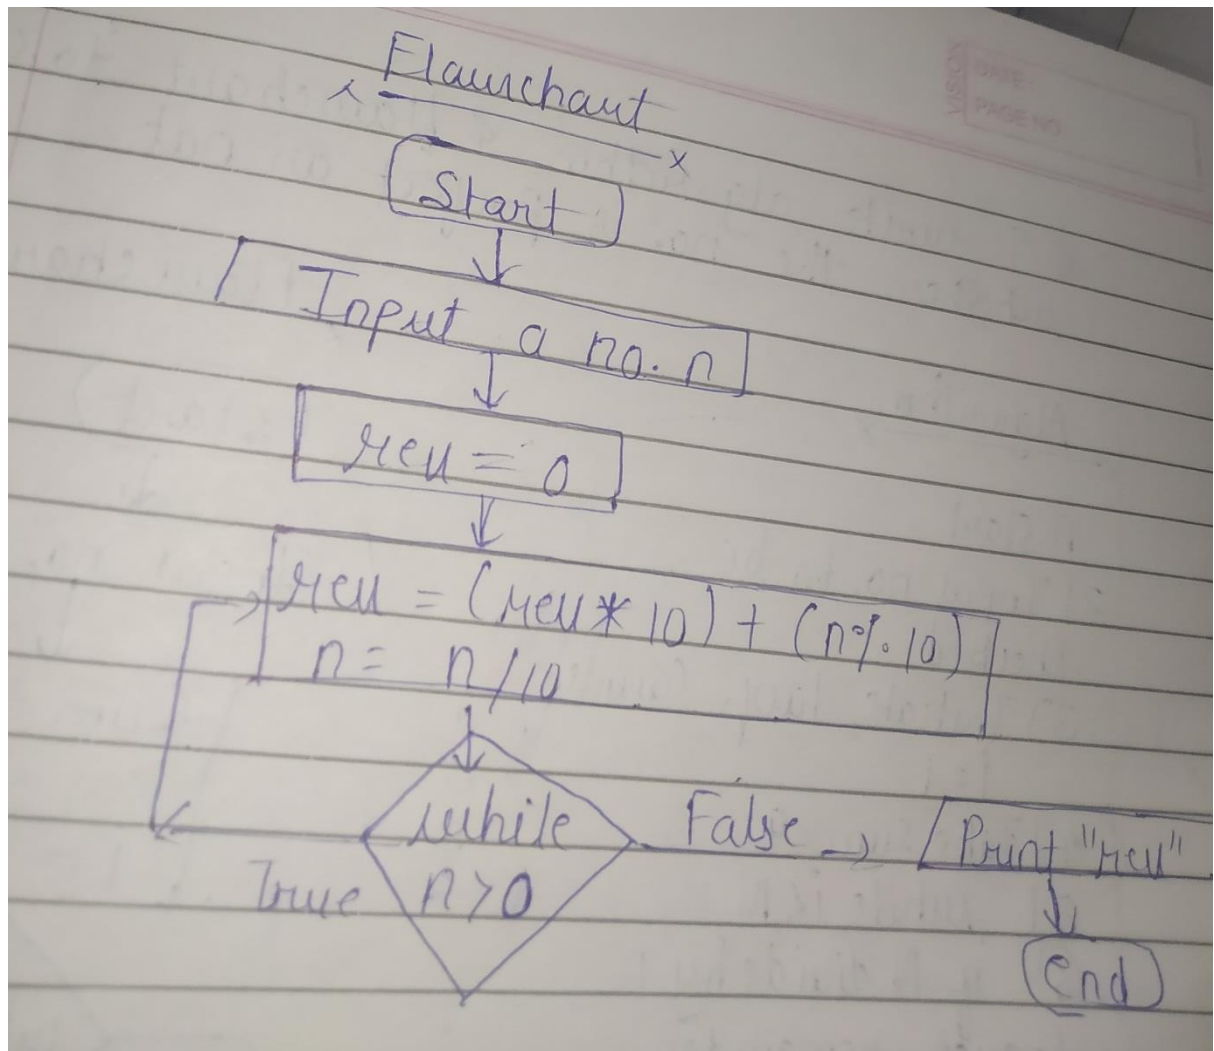 VISION
DATE:
PAGE NO.
Flowchart
Start
Input a no. n
rev = 0
rev = (rev * 10) + (n % 10)
n = n/10
while
n>0
False
True
Print "rev"
end